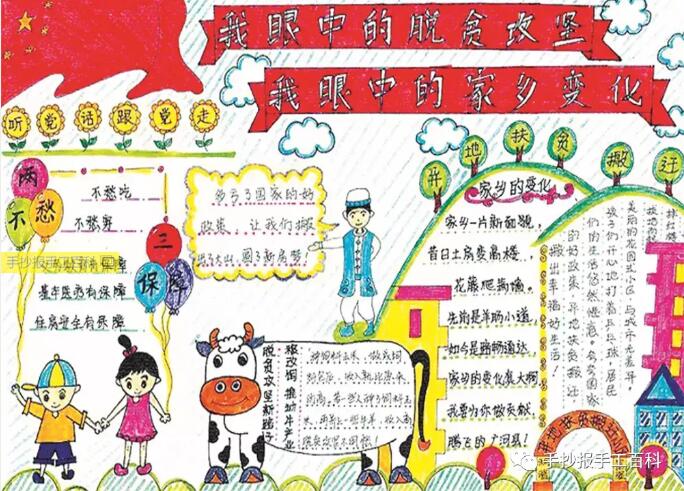 我眼中的脱贫攻坚
我眼中的家乡变化
听党话跟党走
两不愁
不愁吃
不愁穿
三保障
基本医疗有保障
住房安全有保障
多亏了国家的好
政策，让我们搬
出了大山，圆了新房梦！
脱贫攻坚新路子
粮改饲 推动牛羊业
易地扶贫搬迁
家乡的变化
家乡一片新面貌，
昔日土房变高楼。
花藤爬满墙。
先前是羊肠小道
如今是路畅通达
家乡的变化真大啊
我要为你做贡献，
腾飞的广河县！
美丽的花园式小区，与城市无差异，
孩子们开心地打着乒乓球，居民
们的生活悠然惬意。多亏国家
的好政策，异地扶贫搬迁
搬出幸福好生活！
易地扶贫搬迁小区
手抄报手工百科
手抄报手工百科